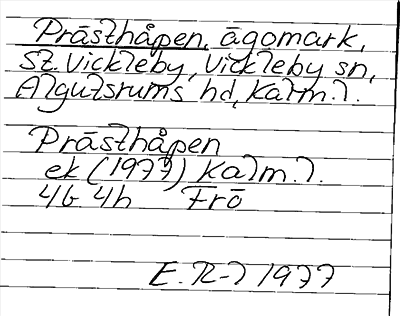 Prästhåpen, ägomark,
St. Vickleby, Vickleby sn,
Algutsrums hd, Kalm.l.
Prästhåpen
ek (1977) Kalm.l.
4G 4h Frö
E.R-l 1977